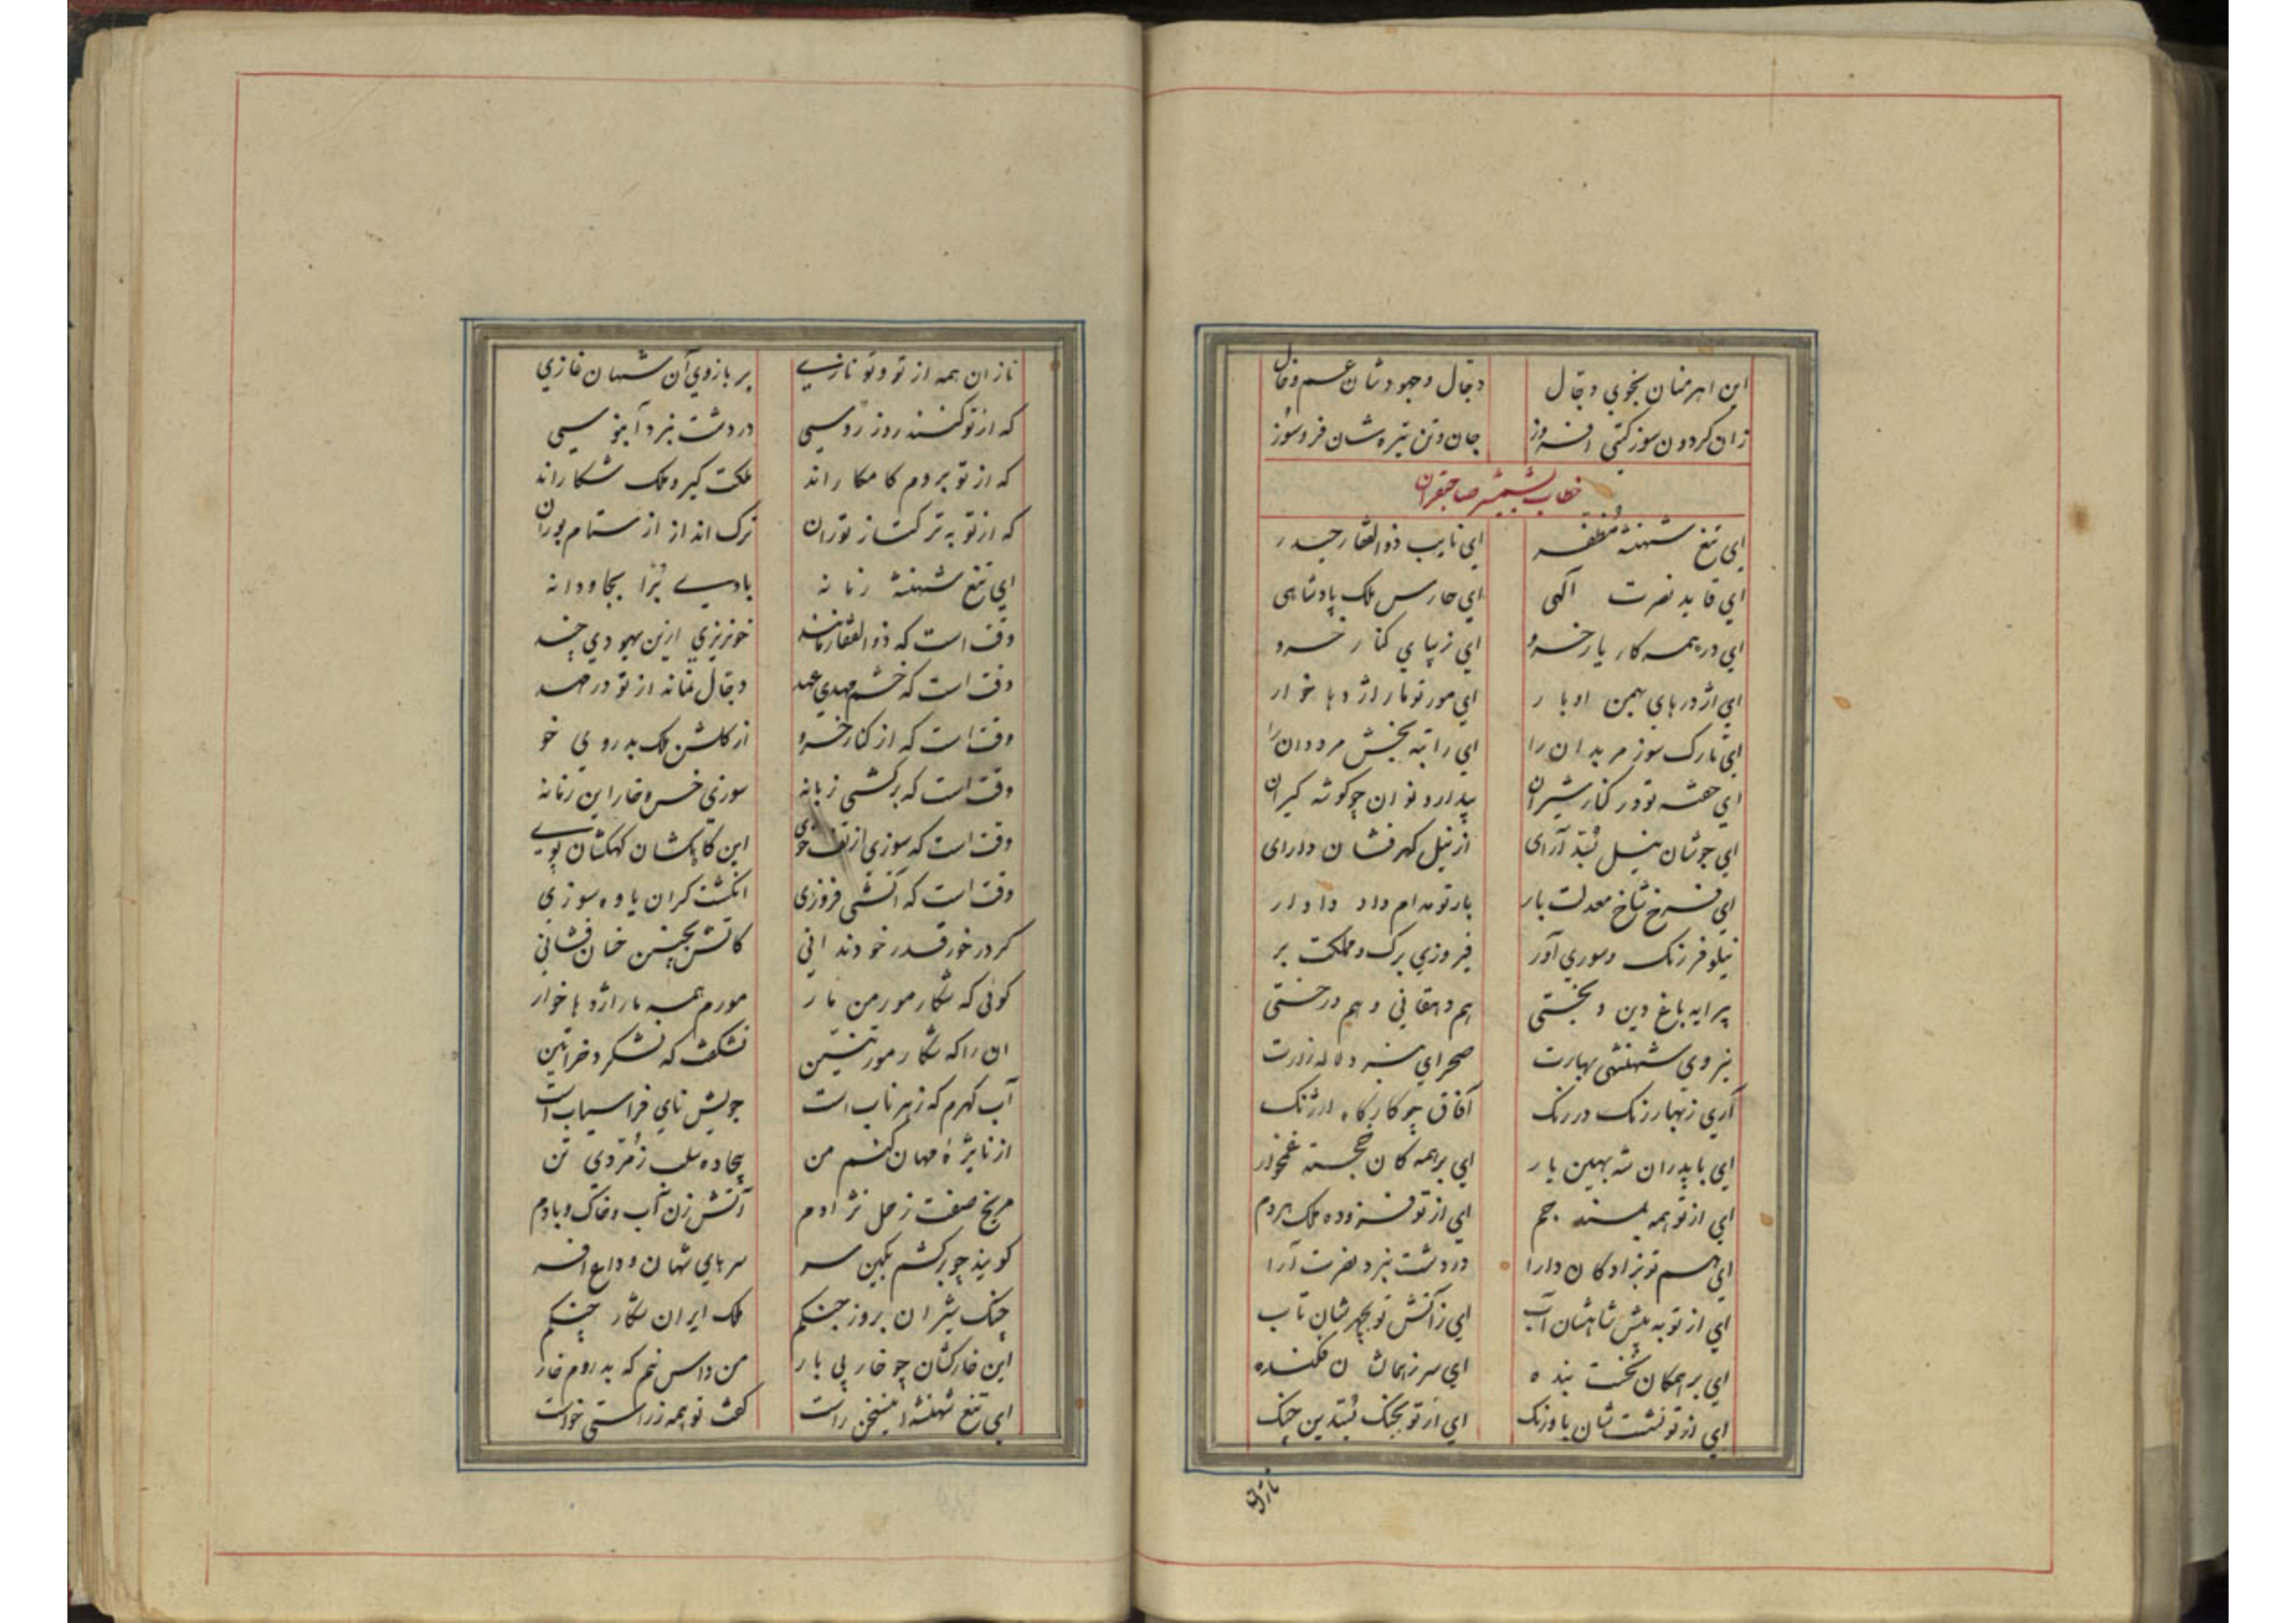 این اهرمنان بخوی دجال دجال وجهودشان عم وخال
زان کردون سوز کتی افروز جان وتن تیره شان فروسوز
خطاب بشمشیر صاحبقران
ای تیغ شهنشه مظفر ای نایب ذوالفقار حیدر
ای قاید نصرت آلهی ای حارس ملک پادشاهی
ای در همه کار یار خسرو ای زیبای کنار خسرو
ای اژدرهای بهمن اوبار ای مور تو مار اژدها خوار
ای تارک سوز مریدان را ای راتبه بخش مرددان را
ای خفته تو در کنار شیران بیدار و نوان چو کوشه کیران
ای جوشان نیل آرای از نیل کهرفشان دارای
ای فرخ شاخ معدلت بار بار تو مدام داد دادار
نیلوفر رنک وسوری آور فیروزی برک ومملکت بر
پیرایه باغ دین و بختی هم دهقانی و هم درختی
نیروی شهنشهی بهارت صحرای نبرد لاله زارت
آری زبهار رنک در رنک آفاق چو کارکاه ارژنک
ای با پدران شه بهین یار ای بر همه کان خجسته غمخوار
ای از تو همه بلند جم ای از تو فزوده ملک هر دم
ای هم تو نژادکان دارا در دشت نبرد نصرت آرا
ای از تو به پیش شاهشان آب ای زآتش تو بچهرشان تاب
ای بر همکان نخست بنده ای سر زهمانشان فکنده
ای از تو نشست شان باورنک ای از تو بجنک دین چنک
نازان
نازان همه از تو وتو نازی بر بازوی آن شهان غازی
که از تو کنند روز روسی در دشت نبرد آبنوسی
که از تو بر دم کامکاراند ملکت کیر و ملک شکاراند
که از تو به ترکتاز توران ترک انداز از ستام بوران
ای تیغ شهنشه زمانه بادی بجاودانه
وقت است که ذوالفقار مانند خونریزی ازین یهودی چند
وقت است که خشم مهدی عهد دجال نماند از تو در مهد
وقت است که از کنار خسرو از کلشن ملک بدروی خو
وقت است که برکشی زبانه سوزی خس و خار این زمانه
وقت است که سوزی از تف خوی این کهکشان پوی
وقت است که آتشی فروزی انکشت کران یاوه سوزی
کر در خور قدر خود ندانی کاتش بچنین خسان فشانی
کوئی که شکار مور من مار مورم همه مار اژدها خوار
ان را که شکار مور تنین نشکفت که نشکرد خراتین
آب کهرم که زهر ناب است جویش نای فراسیاب است
از نایژه مهان کنم من بیجاده سلب زمردی تن
مریخ صفت زحل نژادم آتش زن آب وخاک وبادم
کویند چو برکشم بکین سر سرهای شهان وداع افسر
چنک شیران بروز جنکم ملک ایران شکار چنکم
این خارکشان چو خار بی بار من داس نیم که بدروم خار
ای تیغ شهنشه اینسخن راست کفت تو همه زراستی خواست